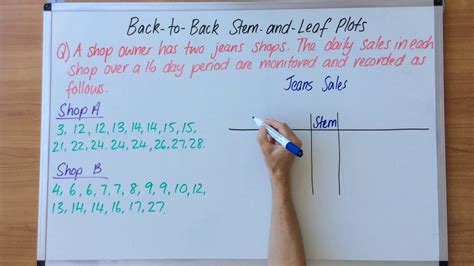 Back-to-Back Stem-and-Leaf Plots
Q) A shop owner has two jeans shops. The daily sales in each
shop over a 16 day period are monitored and recorded as
follows.
Jeans Sales
Shop A
3, 12, 12, 13, 14, 14, 15, 15,
21, 22, 24, 24, 24, 26, 27, 28.
Shop B
4, 6, 6, 7, 7, 8, 9, 9, 10, 12,
13, 14, 14, 16, 17, 27.
Stem